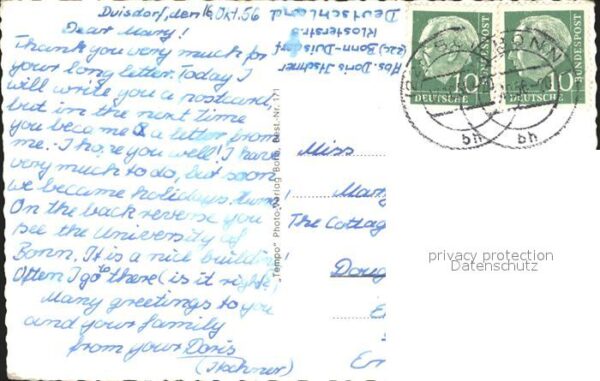 Duisdorf, den 16. Okt. 56
Dear Mary!
Thank you very much for
your long letter. Today I
will write you a postcard,
but in the next time
you become a letter from
me. I hope you well! I have
very much to do, but soon
we became holidays.
On the back reverse you
see the University of
Bonn. It is a nice building!
Often I go to there (is it right
Many greetings to you
and your family
from your Doris
Abs. Doris
(22c) Bonn-Duisdorf
Klosterstr.
Deutschland
"Tempo" Photo-Verlag Bonn, Best.-Nr. 171
10
DEUTSCHE
BUNDESPOST
10
DEUTSCHE
BUNDESPOST
BONN
bh
bh
Miss
Mary
The Cottag
Doug
privacy protection
Datenschutz